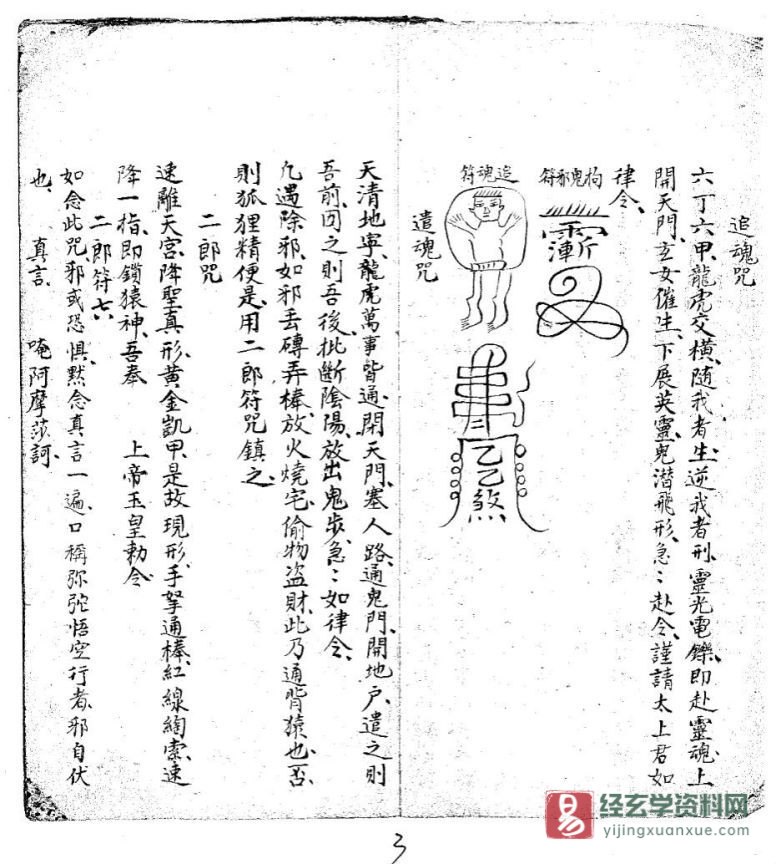 追魂咒
六丁六甲、龍虎交橫、隨我者生、逆我者刑、靈光電鑠、即赴靈魂、上
開天門、玄女催生、下展英靈、鬼潛飛形、急〻赴令、謹請太上君如
律令、
拘鬼邪符
追魂符
乙乙煞
遣魂咒
天清地寧、龍虎萬事皆通、閉天門、塞人路、通鬼門、開地戶、遣之則
吾前、因之則吾後、批斷陰陽、放出鬼步、急〻如律令、
凡遇除邪、如邪丟磚弄棒、放火燒宅、偷物盗財、此乃通背猿也、否
則狐狸精便是、用二郎符咒鎮之、
二郎咒
速離天宮、降聖真形、黃金凱甲、是故現形、手拏通棒、紅線縚索、速
降一指、即鎖猿神、吾奉 上帝玉皇勅令、
二郎符七
如念此咒、邪或恐惧、黙念真言一遍、口稱弥陀悟空行者、邪自伏
也、 真言、 唵阿摩莎訶、
3
易 经玄学资料网
yijingxuanxue.com